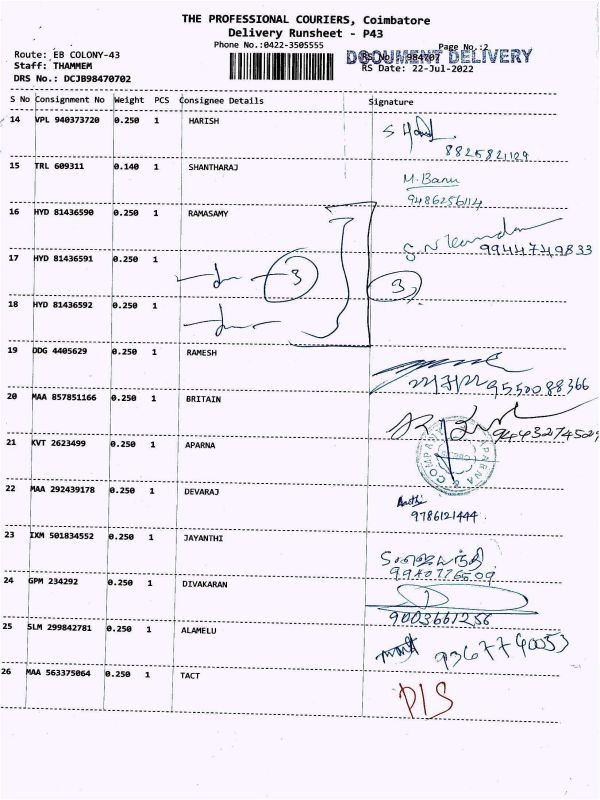 THE PROFESSIONAL COURIERS, Coimbatore
Delivery Runsheet - P43
Phone No.:0422-3505555
Page No.:2
DOCUMENT DELIVERY
Route: EB COLONY-43
Staff: THAMMEM
RS Date: 22-Jul-2022
DRS No.: DCJB98470702
S No Consignment No Weight PCS Consignee Details Signature
14 VPL 940373720 0.250 1 HARISH
8825821129
15 TRL 609311 0.140 1 SHANTHARAJ M. Banu
9486256114
16 HYD 81436590 0.250 1 RAMASAMY
9944749833
17 HYD 81436591 0.250 1 3 3
18 HYD 81436592 0.250 1
19 DDG 4405629 0.250 1 RAMESH
9550088366
20 MAA 857851166 0.250 1 BRITAIN
21 KVT 2623499 0.250 1 APARNA
22 MAA 292439178 0.250 1 DEVARAJ
9786121444
23 IXM 501834552 0.250 1 JAYANTHI
24 GPM 234292 0.250 1 DIVAKARAN
25 SLM 299842781 0.250 1 ALAMELU
9367740053
26 MAA 563375064 0.250 1 TACT